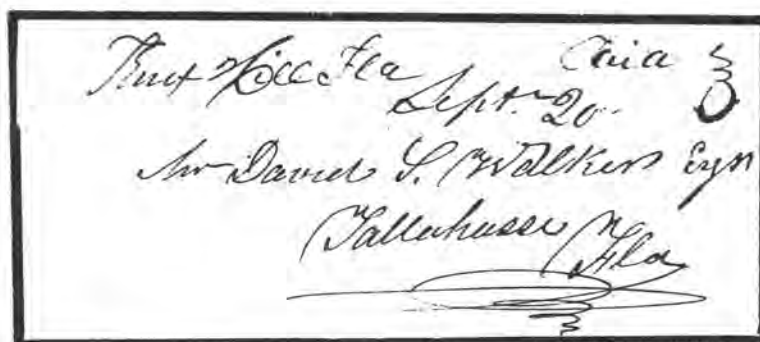 Hill Fla Paid 3
Sept. 20
Mr David S. Walker Esqr
Tallahassee
Fla